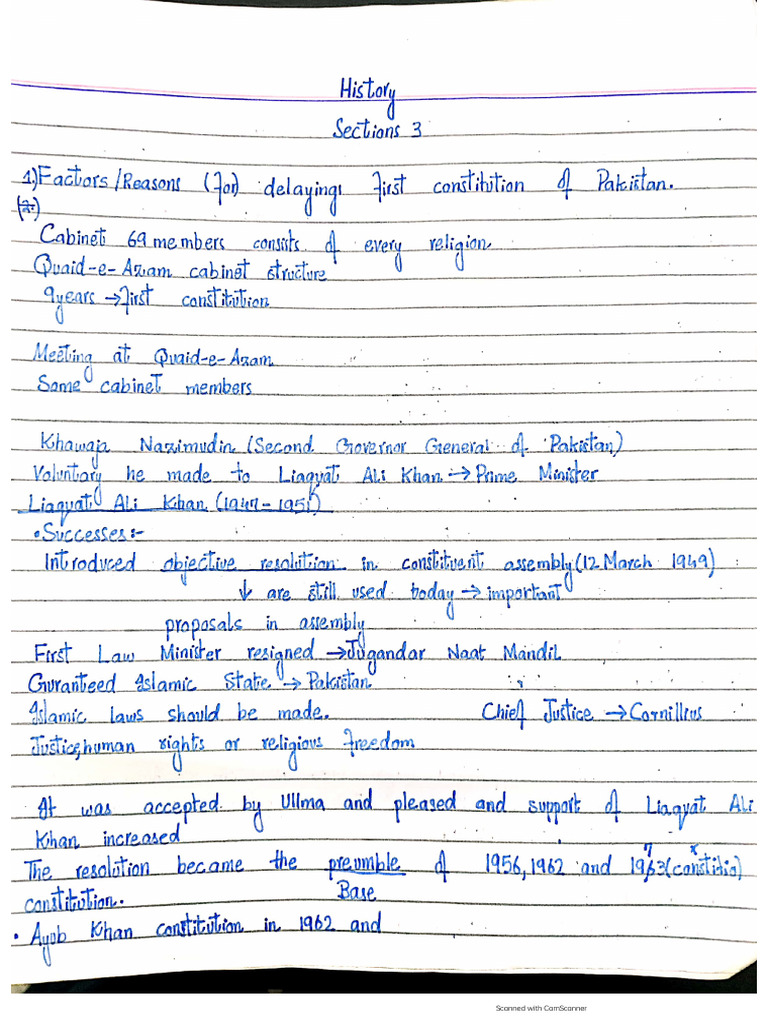 History
Sections 3
1) Factors/Reasons (for) delayings first constitution of Pakistan.
Cabinet 69 members consists of every religion
Quaid-e-Azam cabinet structure
9years → first constitution
Meeting at Quaid-e-Azam
Some cabinet members
Khawaja Nazimudin (Second Governor General of Pakistan)
Voluntary he made to Liaqyat Ali Khan → Prime Minister
Liaquat Ali Khan (1947-1951)
• Successes:-
Introduced objective resolution in constituent assembly (12 March 1949)
↓ are still used today → important
proposals in assembly
First Law Minister resigned → Jugandar Naat Mandil
Guranteed Islamic State → Pakistan
Islamic laws should be made. Chief Justice → Cornillius
Justice, human rights or religious freedom
It was accepted by Ullma and pleased and support of Liaqyat Ali
Khan increased
The resolution became the preumble of 1956, 1962 and 1973 (constitio)
constitution. Base
• Ayub Khan constitution in 1962 and
Scanned with CamScanner